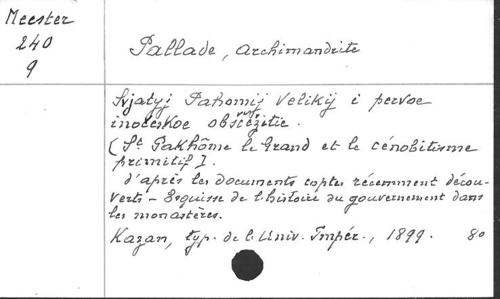 Meester
240
9
Pallade, archimandrite
Svjatyj Pahomij Velikij i pervoe
inočeskoe obščežitie.
(St Pakhôme le Grand et le cénobitisme
primitif).
d'après les documents coptes récemment décou-
verts - Esquisse de l'histoire du gouvernement dans
les monastères.
Kazan, typ. de l. Univ. Impér., 1899. 8o